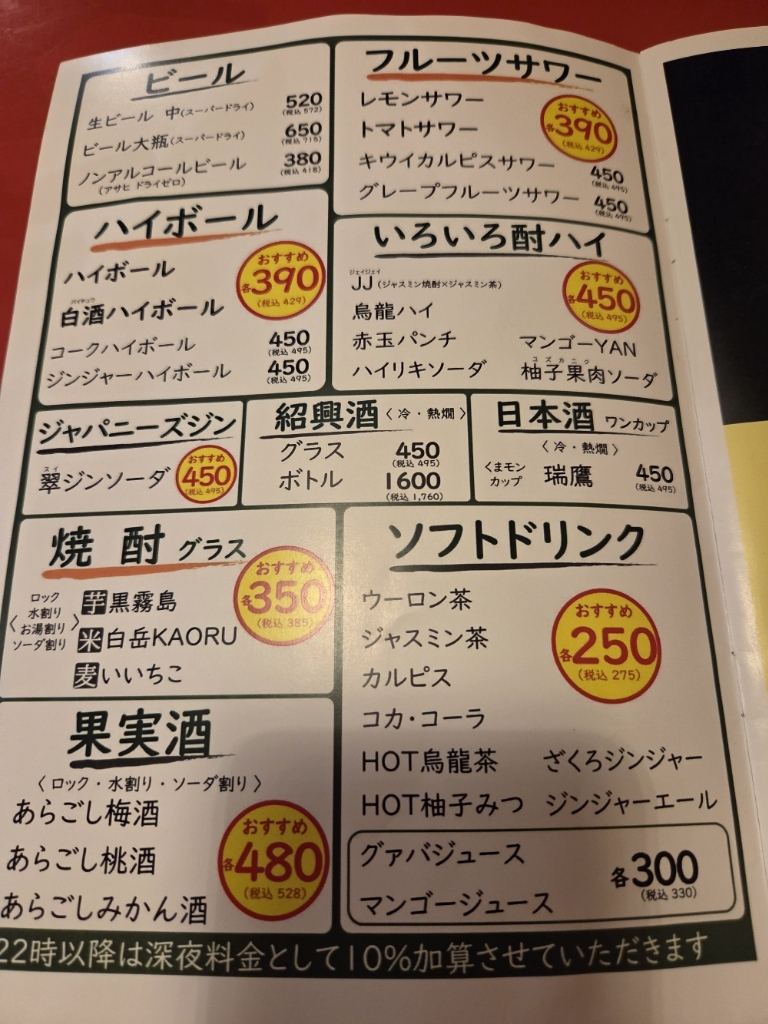 ビール
生ビール 中(スーパードライ) 520
(税込 572)
ビール大瓶(スーパードライ) 650
(税込 715)
ノンアルコールビール 380
(アサヒ ドライゼロ) (税込 418)
フルーツサワー
レモンサワー
トマトサワー
おすすめ
各390
(税込 429)
キウイカルピスサワー 450
(税込 495)
グレープフルーツサワー 450
(税込 495)
ハイボール
ハイボール
パイチュウ
白酒ハイボール
おすすめ
各390
(税込 429)
コークハイボール 450
(税込 495)
ジンジャーハイボール 450
(税込 495)
いろいろ酎ハイ
ジェイジェイ
JJ(ジャスミン焼酎×ジャスミン茶)
烏龍ハイ
赤玉パンチ マンゴーYAN
ユズカニク
ハイリキソーダ 柚子果肉ソーダ
おすすめ
各450
(税込 495)
ジャパニーズジン
スイ
翠ジンソーダ
おすすめ
450
(税込 495)
紹興酒〈冷・熱燗〉
グラス 450
(税込 495)
ボトル 1600
(税込 1,760)
日本酒 ワンカップ
〈冷・熱燗〉
くまモン
カップ 瑞鷹 450
(税込 495)
焼酎 グラス
おすすめ
各350
(税込 385)
〈ロック
水割り
お湯割り
ソーダ割り〉
芋黒霧島
米白岳KAORU
麦いいちこ
ソフトドリンク
ウーロン茶
ジャスミン茶
カルピス
コカ・コーラ
HOT烏龍茶 ざくろジンジャー
HOT柚子みつ ジンジャーエール
おすすめ
各250
(税込 275)
グァバジュース
マンゴージュース
各300
(税込 330)
果実酒
〈ロック・水割り・ソーダ割り〉
あらごし梅酒
あらごし桃酒
あらごしみかん酒
おすすめ
各480
(税込 528)
22時以降は深夜料金として10%加算させていただきます